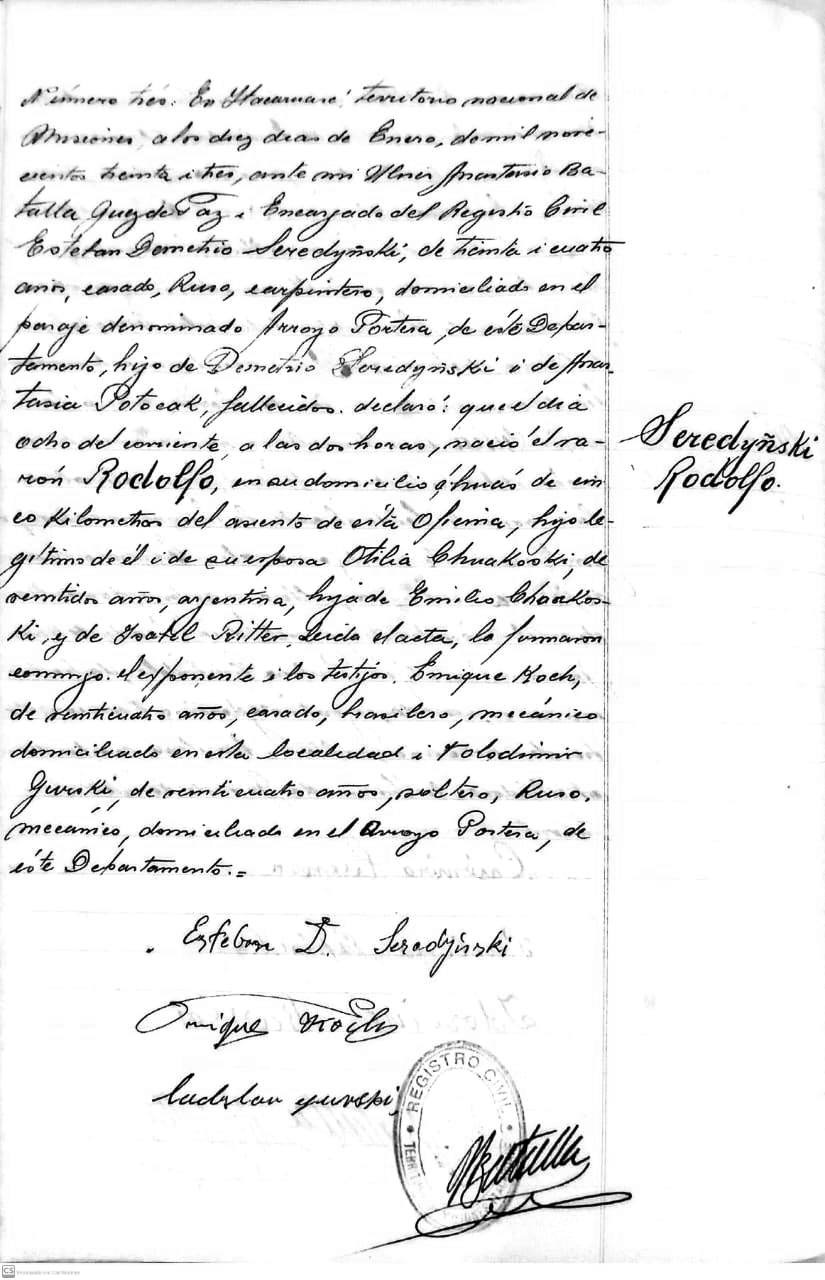 Número tres. En Itacaruaré, territorio nacional de
Misiones, a los diez dias de Enero, de mil nove-
cientos treinta i tres, ante mi Anastasio Ba-
talla Juez de Paz i Encargado del Registro Civil
Esteban Demetrio Seredyñski, de treinta i cuatro
anos, casado, Ruso, carpintero, domiciliado en el
paraje denominado Arroyo Portera, de éste Depar-
tamento, hijo de Demetrio Seredyñski i de Anas-
tasia Potocak, fallecidos. declaró: que el dia
ocho del corriente, a las dos horas, nació el va-
rón Rodolfo, en su domicilio de cin
co Kilometros del asiento de esta Oficina, hijo le-
gítimo de él i de su esposa Otilia Chuakoski, de
veintidos años, argentina, hija de Emilio Chuakos-
ki, y de Isabel Ritter. Leida el acta, la firmaron
conmigo. el exponente i los testijos. Enrique Koch,
de veinticuatro años, casado, brasilero, mecánico
domiciliado en esta localidad i Volodimir
Gurski, de veinticuatro años, soltero, Ruso,
mecánico, domiciliado en el Arroyo Portera, de
éste Departamento.=
Seredyñski
Rodolfo.
Esteban D. Seredyński
Enrique Koch
Ladislao Gurski
REGISTRO CIVIL
Batalla
CS